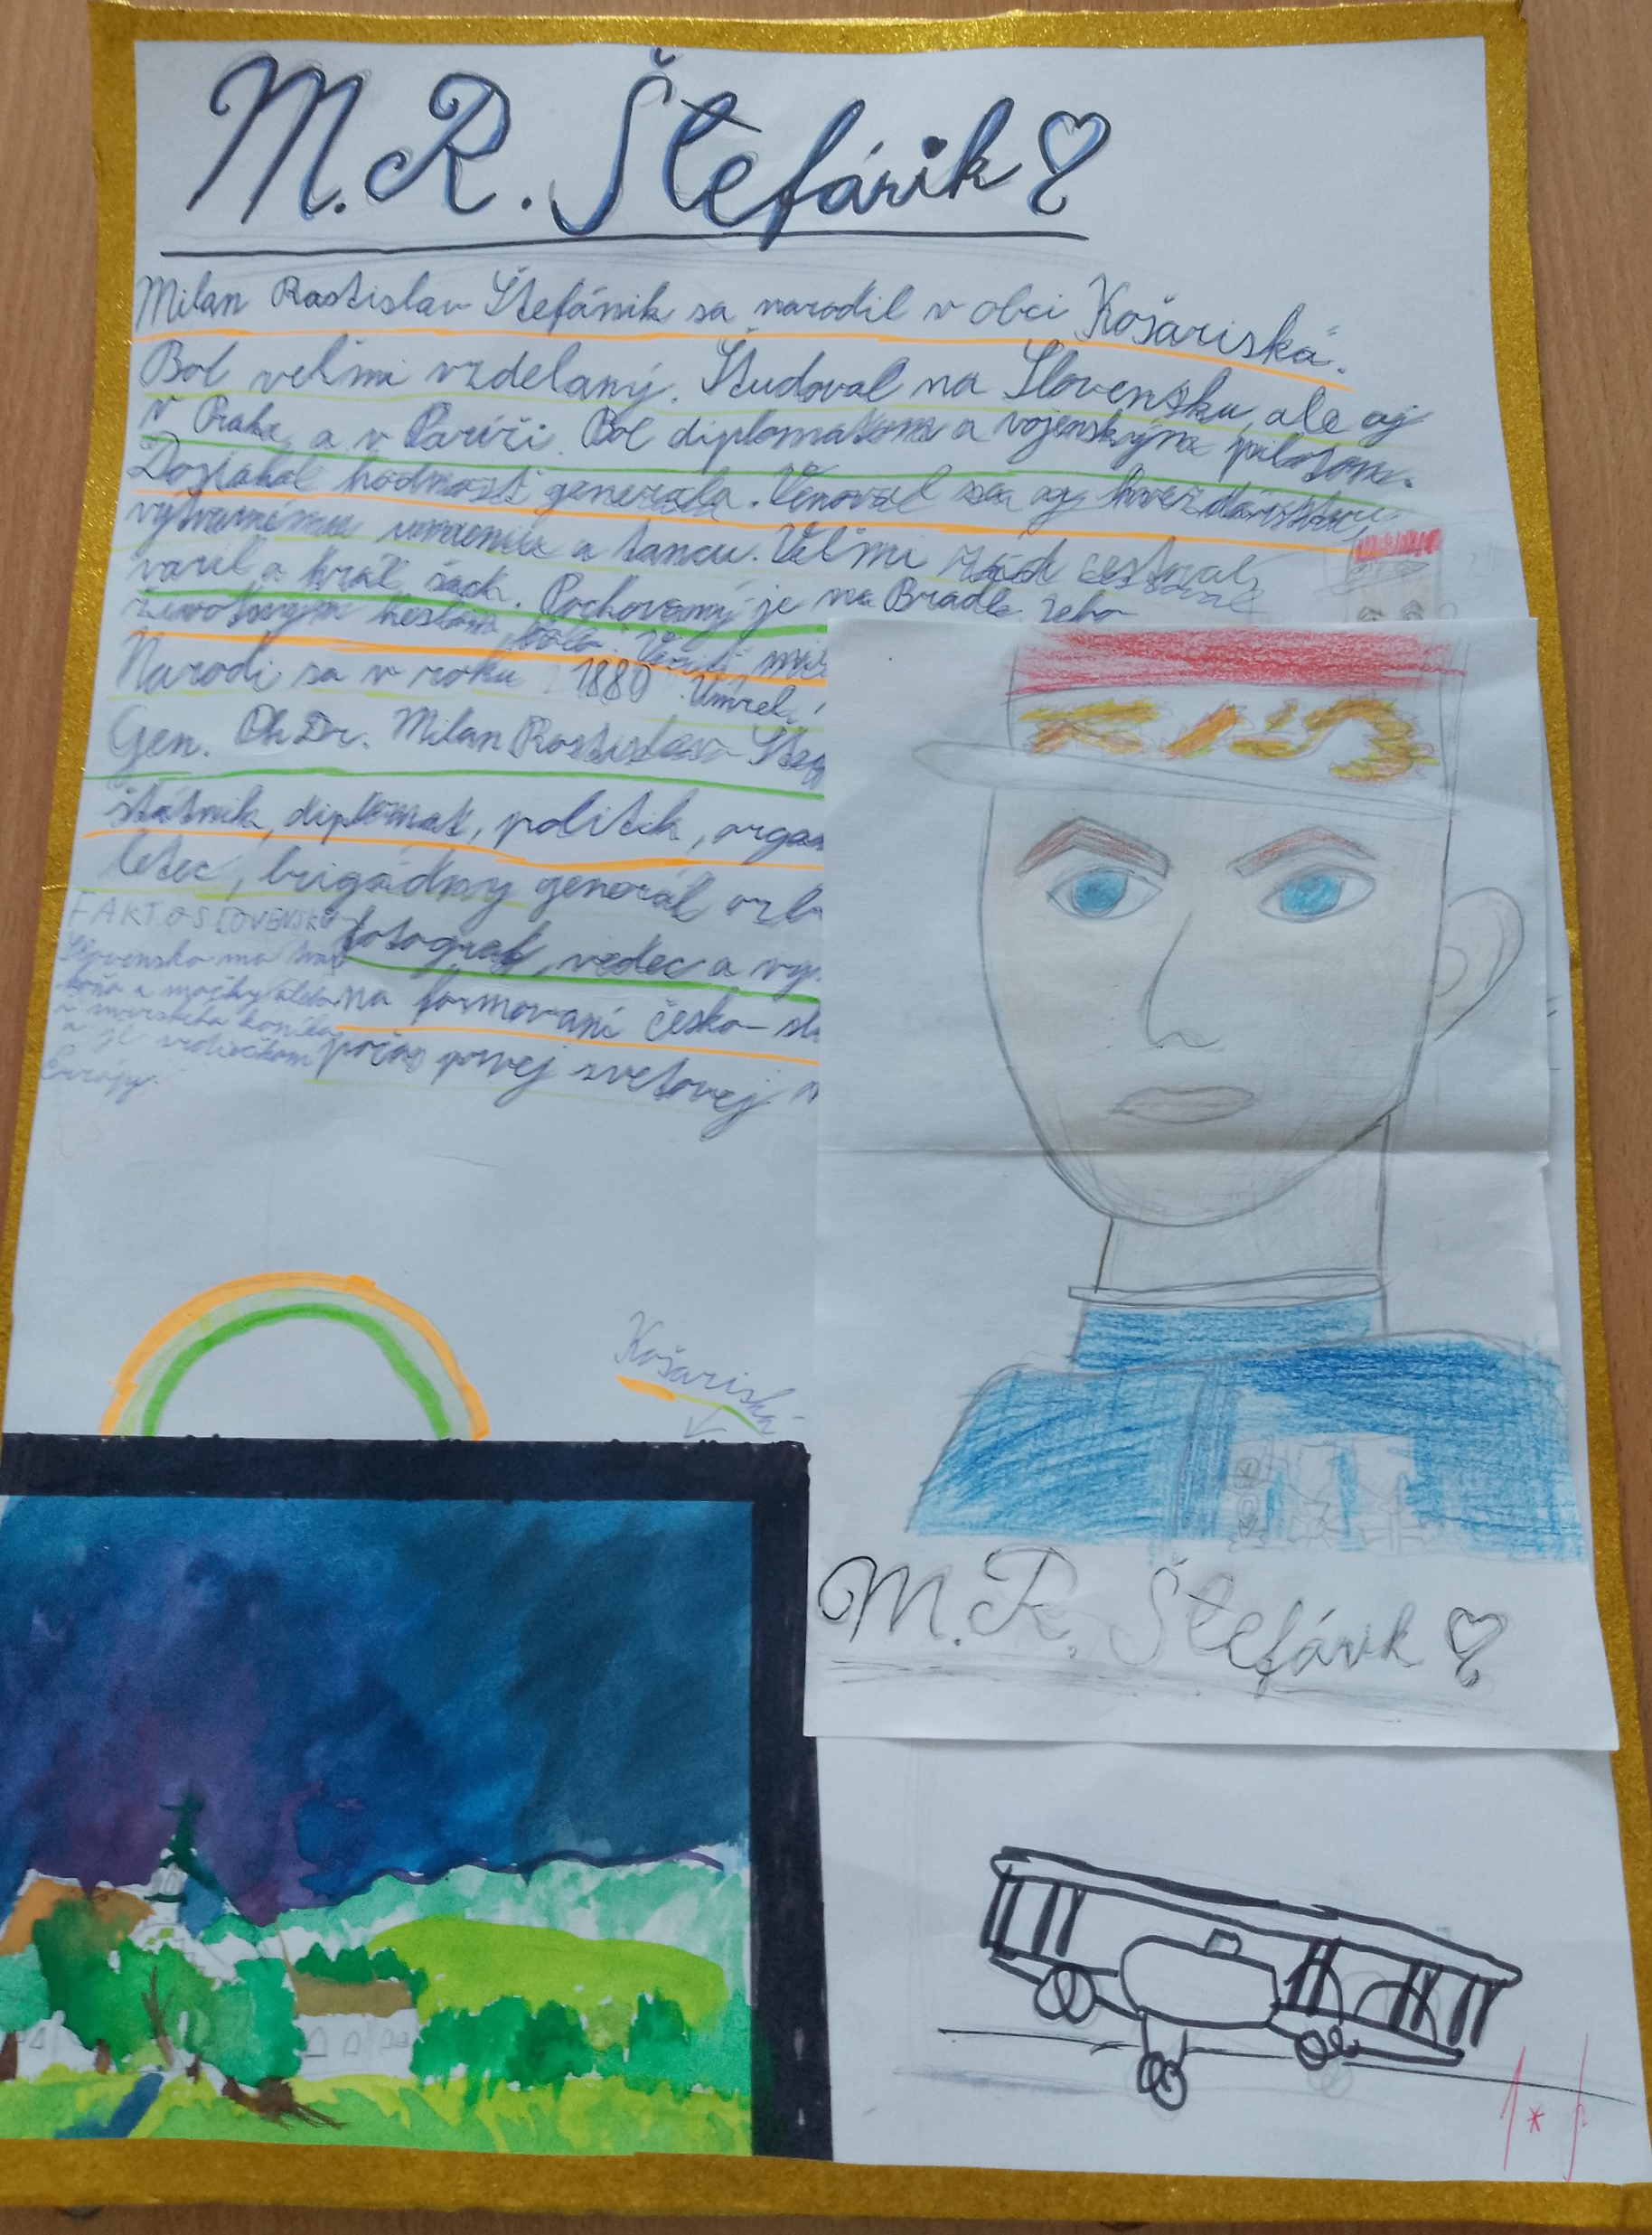 M. R. Štefánik
Milan Rastislav Štefánik sa narodil v obci Košariská.
Bol veľmi vzdelaný. Študoval na Slovensku, ale aj
v Prahe, a v Paríži. Bol diplomatom a vojenským pilotom.
Dosiahol hodnosť generála. Venoval sa aj hvezdárstvu,
výtvarnému umeniu a tancu. Veľmi rád cestoval,
varil a hral šach. Pochovaný je na Bradle. Jeho
životným heslom bolo: Veriť,
Narodi sa v roku 1880. Umrel
Gen. PhDr. Milan Rastislav
štátnik, diplomat, politik,
letec, brigádny generál
fotograf, vedec a
na formovaní česko-
počas prvej svetovej
FAKT O SLOVENSKU
Slovensko má
a je
Európy.
Košariská
M. R. Štefánik
1*